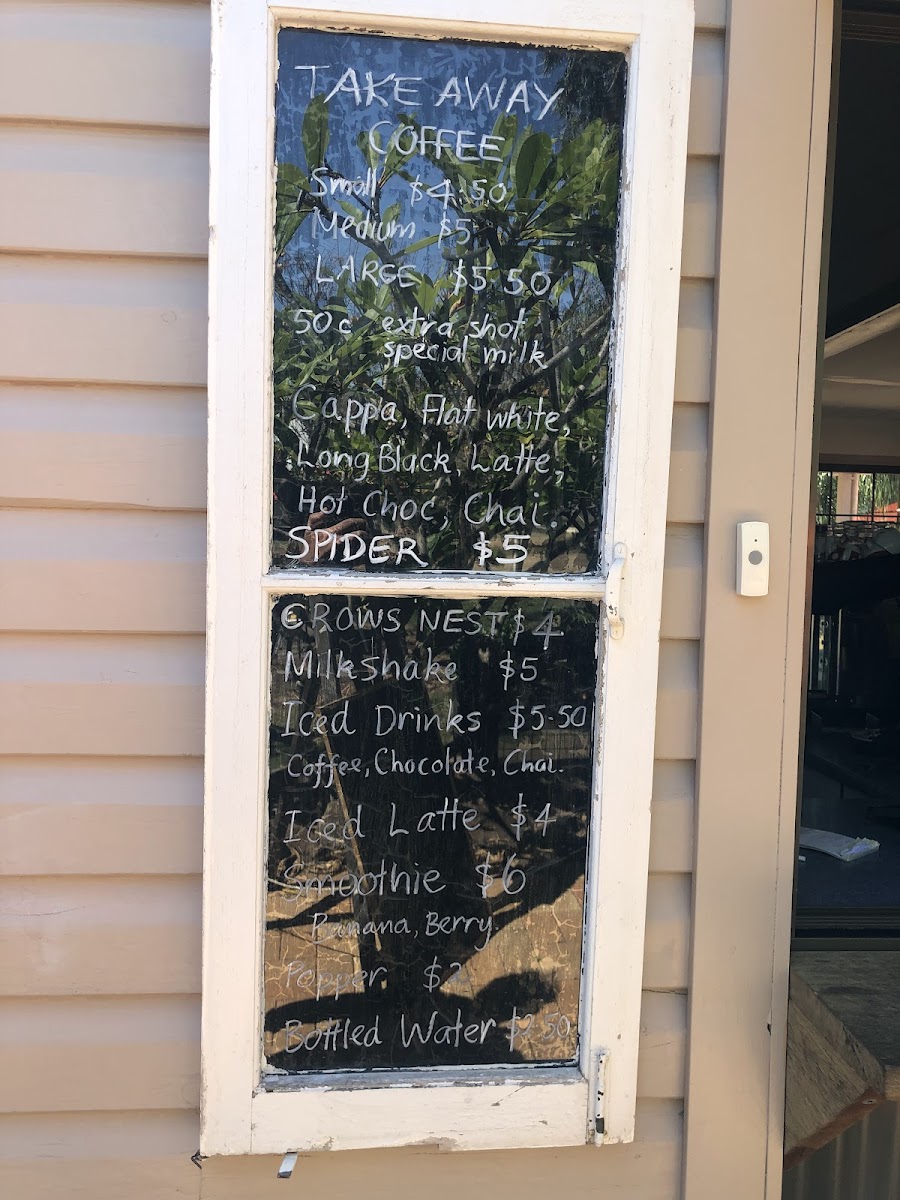 TAKE AWAY
COFFEE
Small $4.50
Medium $5
LARGE $5.50
50c extra shot
special milk
Cappa, Flat white,
Long Black, Latte,
Hot Choc, Chai.
SPIDER $5
CROWS NEST $4
Milkshake $5
Iced Drinks $5.50
Coffee, Chocolate, Chai.
Iced Latte $4
Smoothie $6
Banana, Berry.
Popper $2
Bottled Water $2.50